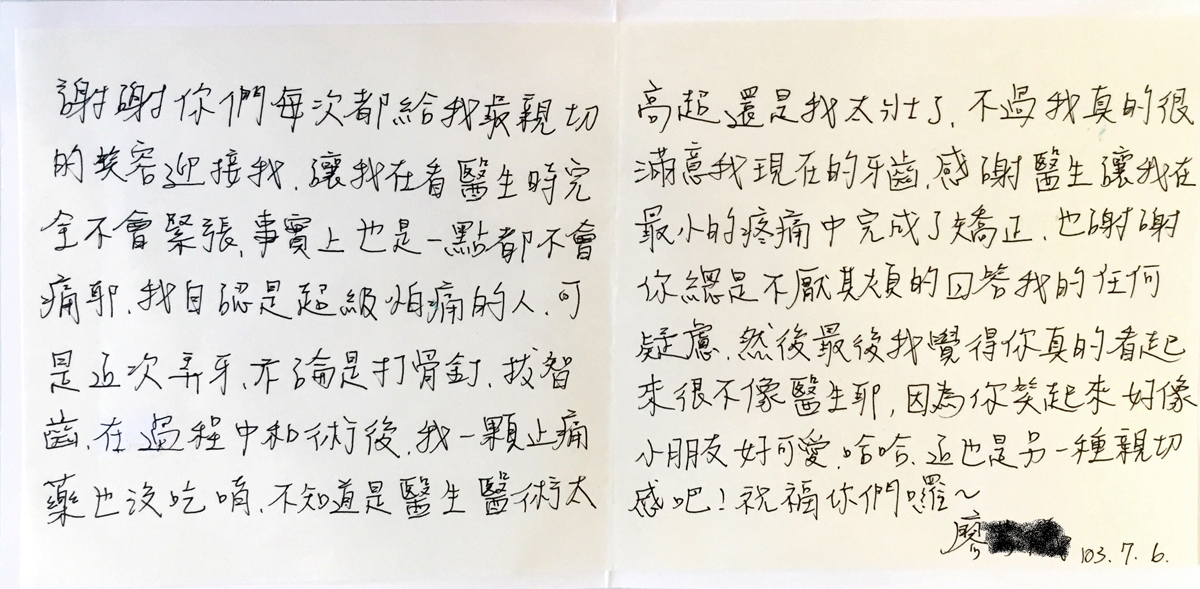 謝謝你們每次都給我最親切
的笑容迎接我.讓我在看醫生時完
全不會緊張,事實上也是一點都不會
痛耶.我自認是超級怕痛的人.可
是這次弄牙.不論是打骨釘.拔智
齒.在過程中和術後.我一顆止痛
藥也沒吃唷.不知道是醫生醫術太
高超還是我太壯了.不過我真的很
滿意我現在的牙齒.感謝醫生讓我在
最小的疼痛中完成了矯正.也謝謝
你總是不厭其煩的回答我的任何
疑慮.然後最後我覺得你真的看起
來很不像醫生耶,因為你笑起來好像
小朋友好可愛.哈哈.這也是另一種親切
感吧!祝福你們囉~
廖
103.7.6.